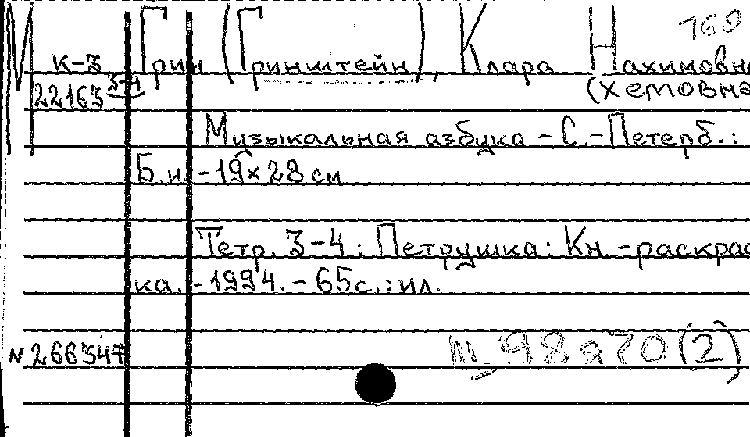 М Грин (Гринштейн), Клара Нахимовна 160
к-3 (хемовна
22163 3-4
Музыкальная азбука - С.-Петерб.:
Б.и. - 19×28 см
Тетр. 3-4: Петрушка: Кн.-раскрас
ка. - 1994. - 65с.: ил.
N 266347
(2)